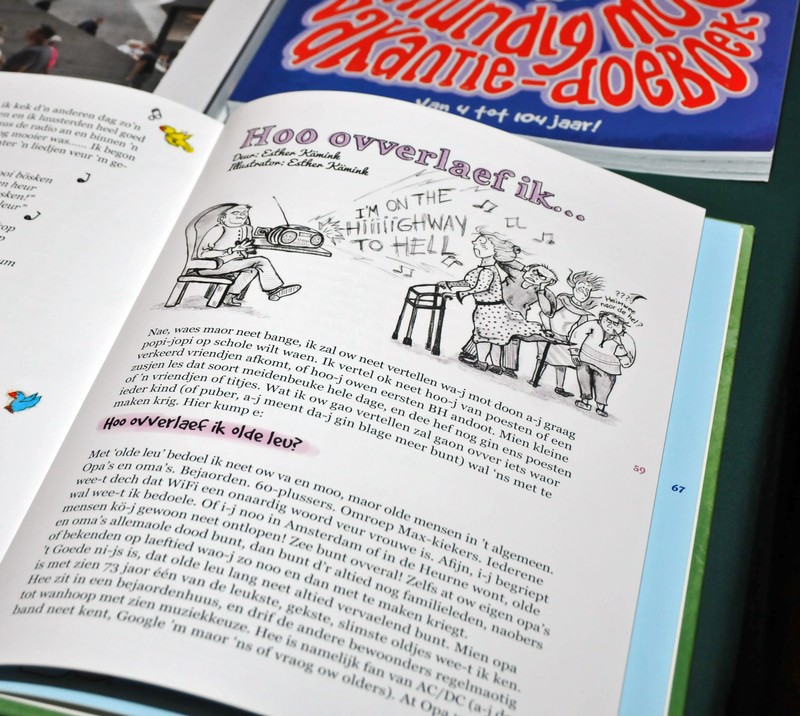 undig
vakantie-doeboek
van 4 tot 104 jaar!
ik kek d'n anderen dag zo'n
en en ik luusterden heel goed
nus de radio an en binnen 'n
og mooier was...... Ik begon
nter 'n liedjen veur 'm ge-
ooi bösken
en heur
sken!"
leur"
op
p
um
Hoo ovverlaef ik...
Deur: Esther Kämink
Illustrator: Esther Kämink
I'M ON THE
HiiiiiiGHWAY
TO HELL
????
Heimwee
naor de hei?
Nae, waes maor neet bange, ik zal ow neet vertellen wa-j mot doon a-j graag
popi-jopi op schole wilt waen. Ik vertel ok neet hoo-j van poesten of een
verkeerd vriendjen afkomt, of hoo-j owen eersten BH andoot. Mien kleine
zusjen les dat soort meidenbeuke hele dage, en dee hef nog gin ens poesten
of 'n vriendjen of titjes. Wat ik ow gao vertellen zal gaon over iets waor
ieder kind (of puber, a-j meent da-j gin blage meer bunt) wal 'ns met te
maken krig. Hier kump e:
Hoo ovverlaef ik olde leu?
Met 'olde leu' bedoel ik neet ow va en moo, maor olde mensen in 't algemeen.
Opa's en oma's. Bejaorden. 60-plussers. Omroep Max-kiekers. Iederene
wee-t dech dat WiFi een onaardig woord veur vrouwe is. Afijn, i-j begriept
wal wee-t ik bedoele. Of i-j noo in Amsterdam of in de Heurne wont, olde
mensen kö-j gewoon neet ontlopen! Zee bunt ovveral! Zelfs at ow eigen opa's
en oma's allemaole dood bunt, dan bunt d'r altied nog familieleden, naobers
of bekenden op laeftied wao-j zo noo en dan met te maken kriegt.
't Goede ni-js is, dat olde leu lang neet altied vervaelend bunt. Mien opa
is met zien 73 jaor één van de leukste, gekste, slimste oldjes wee-t ik ken.
Hee zit in een bejaordenhuus, en drif de andere bewoonders regelmaotig
tot wanhoop met zien muziekkeuze. Hee is namelijk fan van AC/DC (a-j de
band neet kent, Google 'm maor 'ns of vraog ow olders). At Opa
59
67